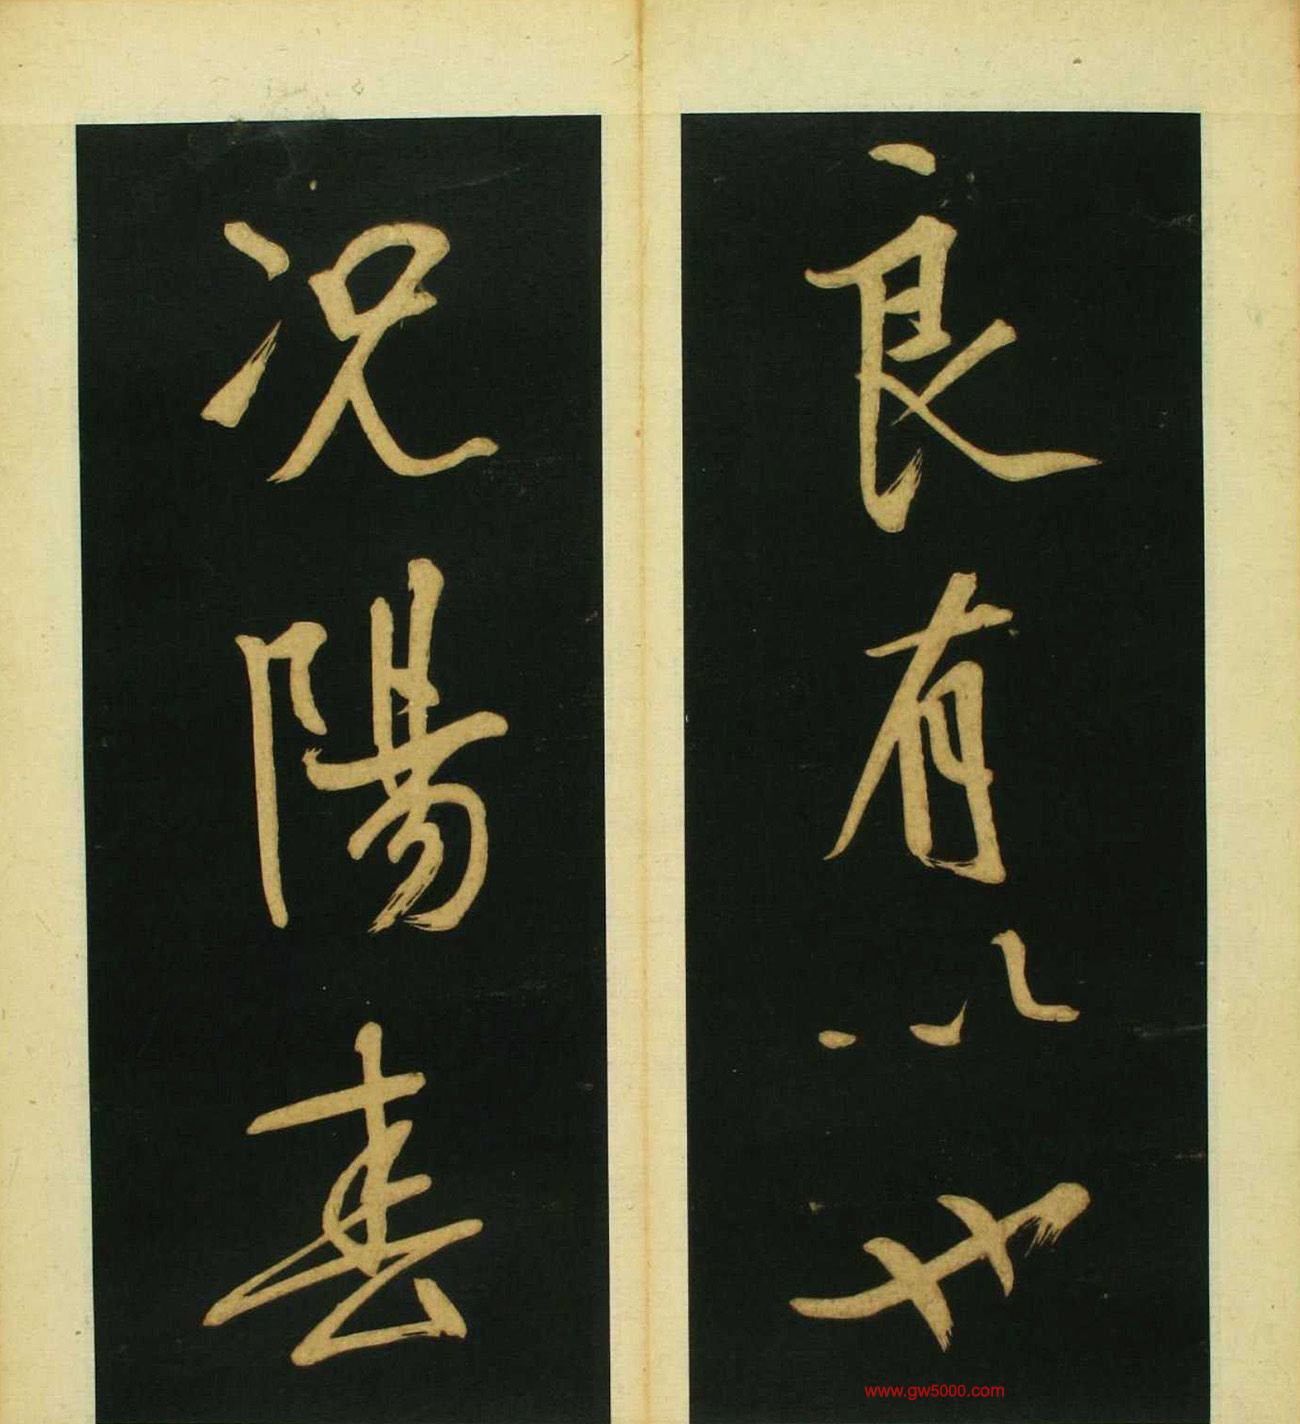 良有以也
况陽春
www.gw5000.com